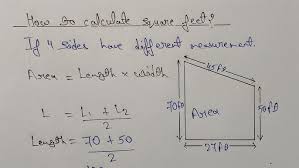 How to calculate square feet?
If 4 sides have different measurement.
Area = Length × width
L = L₁ + L₂
2
Length = 70 + 50
2
45 FD
70 FD
Area
50 FD
27 FD